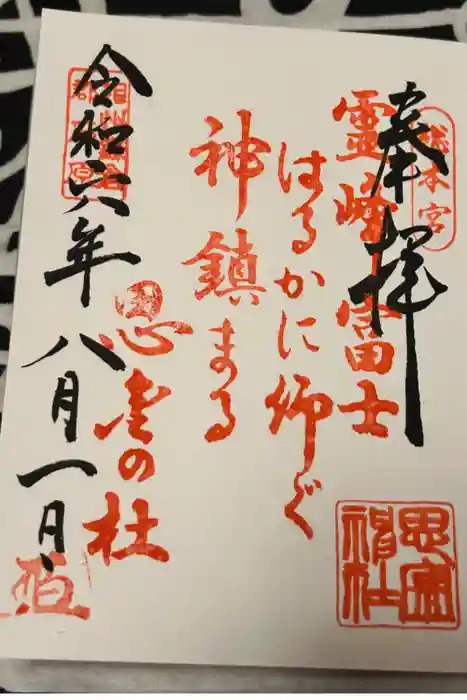 總本宮
奉拝
靈峰富士
はるかに仰ぐ
神鎮まる
思金の杜
思金神社
令和六年八月一日